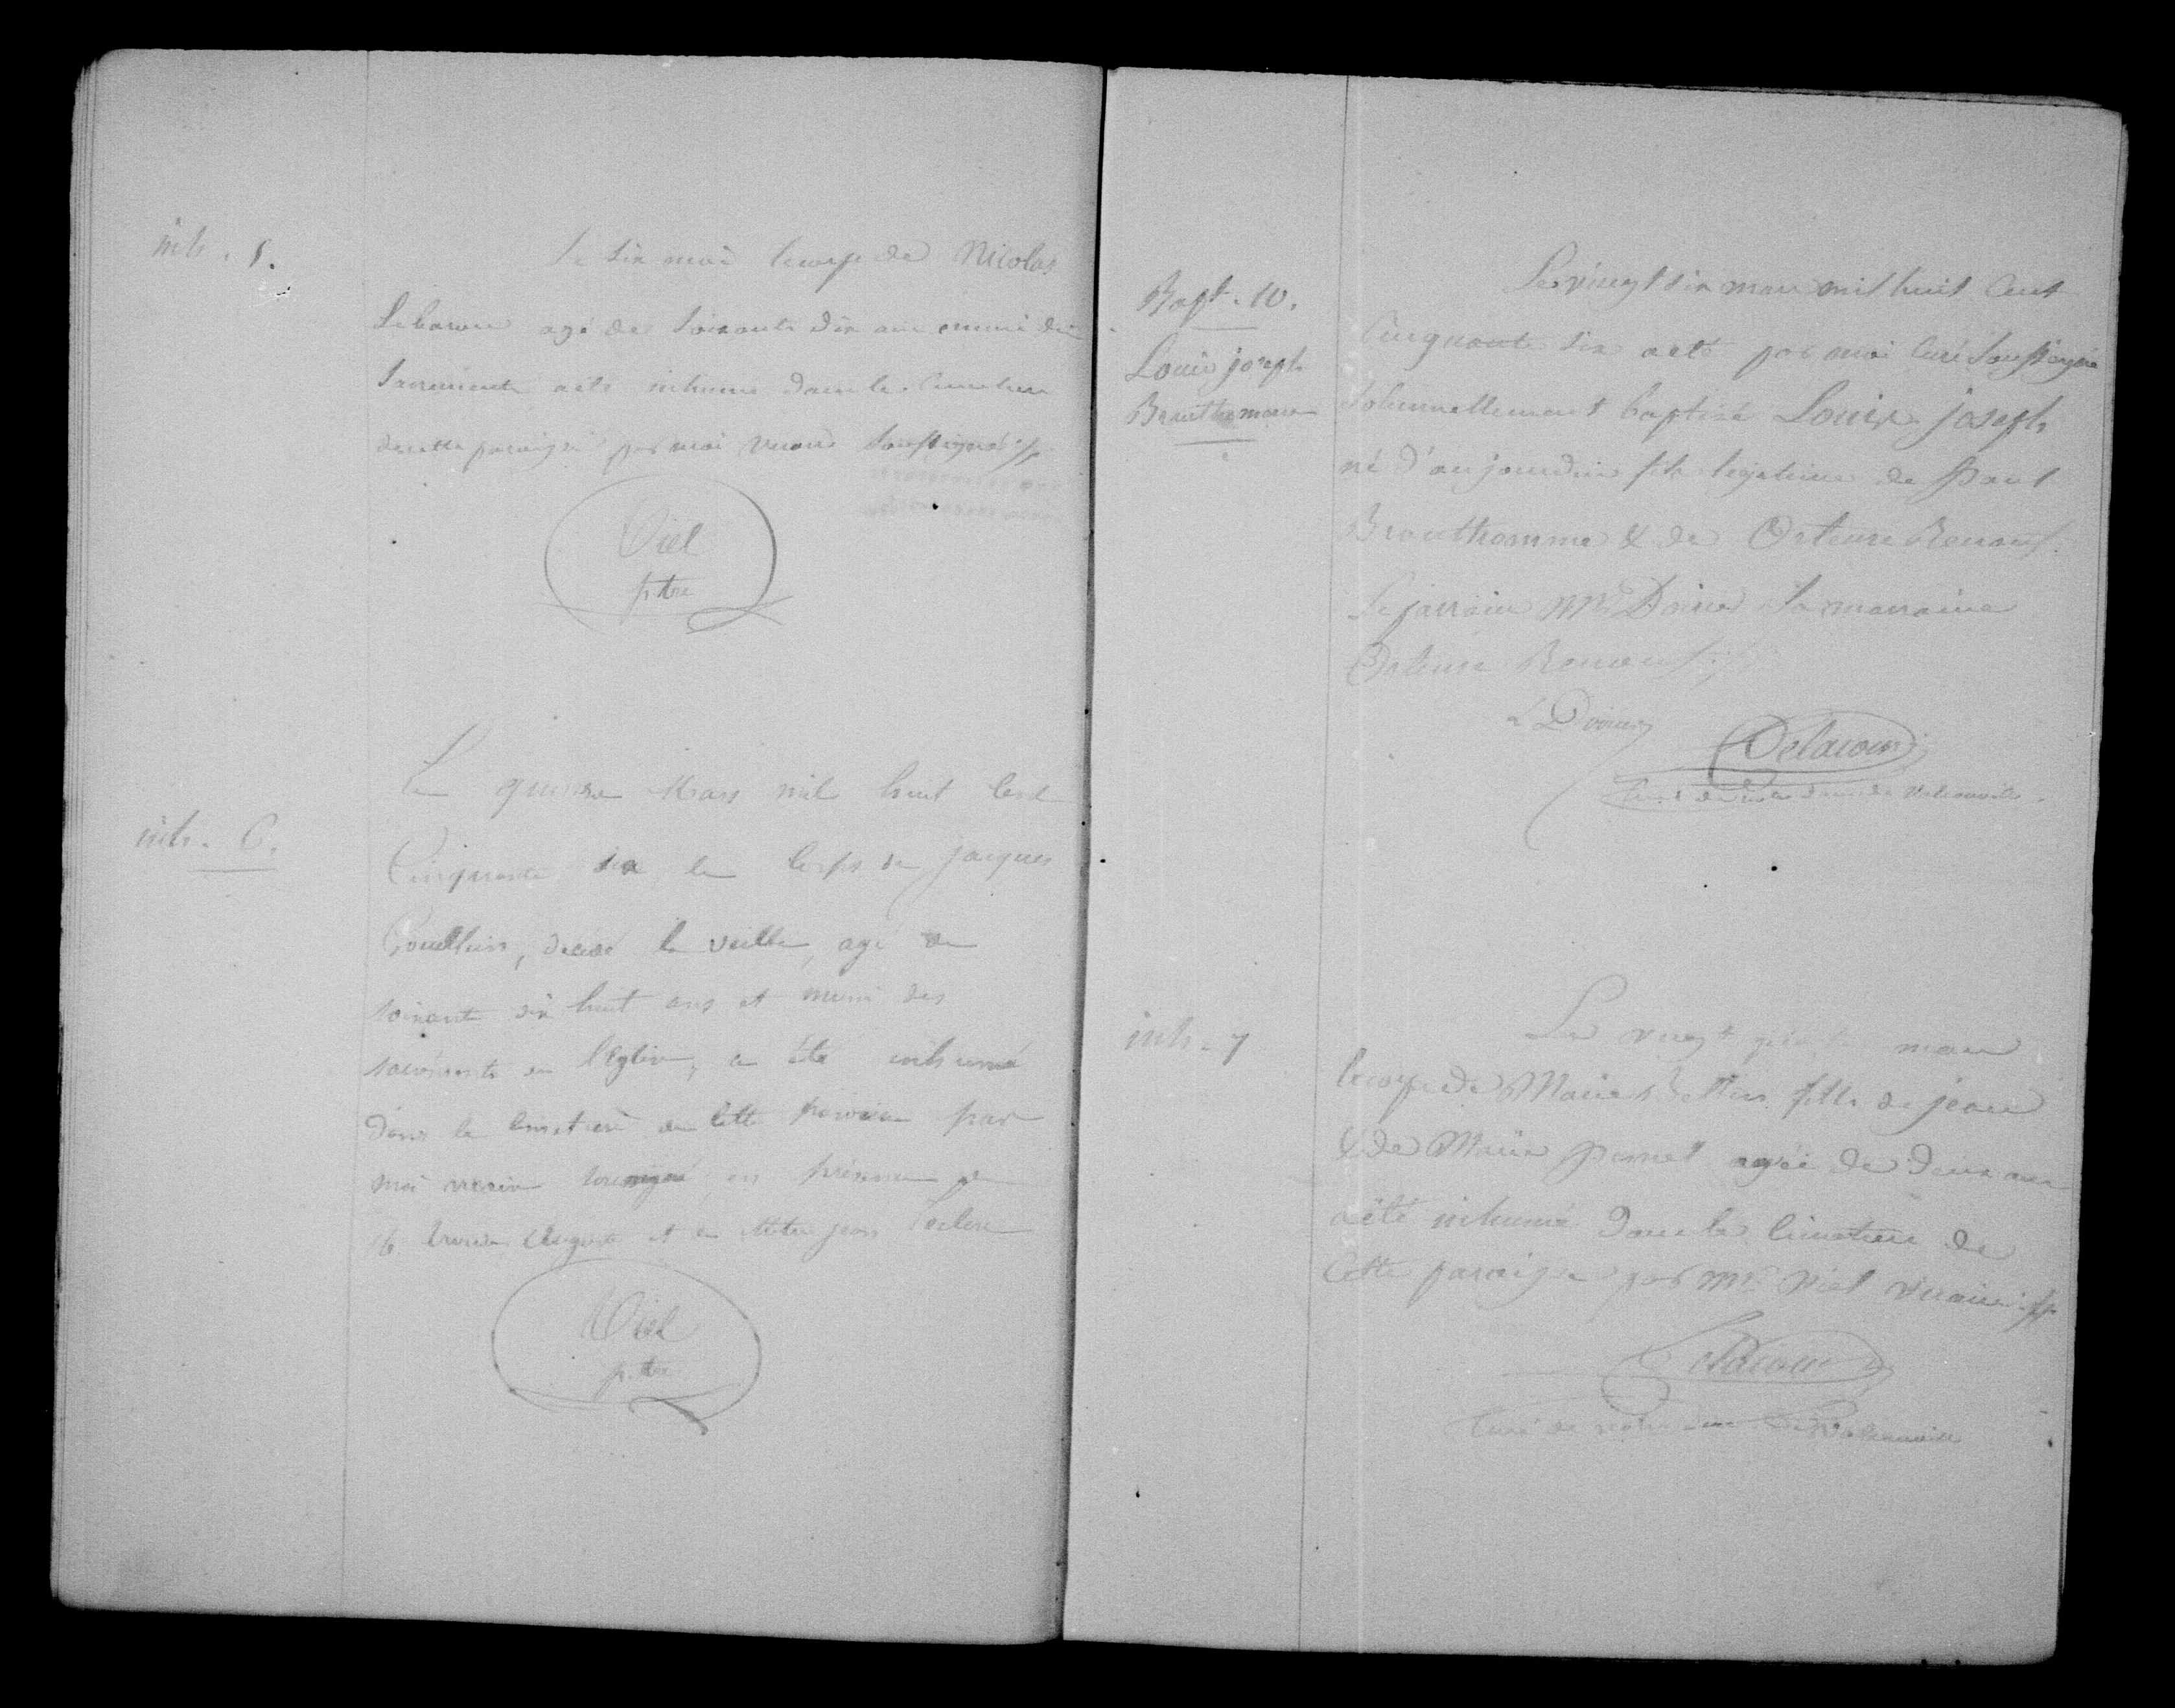 inh. 5.
Le six mars le corps de Nicolas
Lebaron agé de soixante dix ans muni des
Sacrements a été inhumé dans le Cimetiere
de cette paroisse par moi vicaire soussigné
Viel
ptre
inh. 6.
Le quinze Mars mil huit Cent
Cinquante six le Corps de Jacques
décédé la veille, agé de
soixante dix huit ans et muni des
sacrements de l'Eglise, a été inhumé
dans le Cimetière de Cette paroisse par
moi vicaire soussigné en présence de
et de jean
Viel
ptre
Bapt. 10.
Louis joseph
Branthomme
Le vingt six mars mil huit Cent
Cinquante six a été par moi Curé soussigné
Solennellement baptisé Louis joseph
né d'aujourdui fils legitime de Paul
Branthomme & de Ortense Renouf.
Le parrain Mr la marraine
Ortense Renouf
Delacour
Curé de notre dame de
inh. 7
Le vingt mars
le corps de Marie fille de jean
& de Marie agée de deux ans
a été inhumé dans le Cimetiere de
Cette paroisse par Mr Viel vicaire
Delacour
Curé de notre dame de